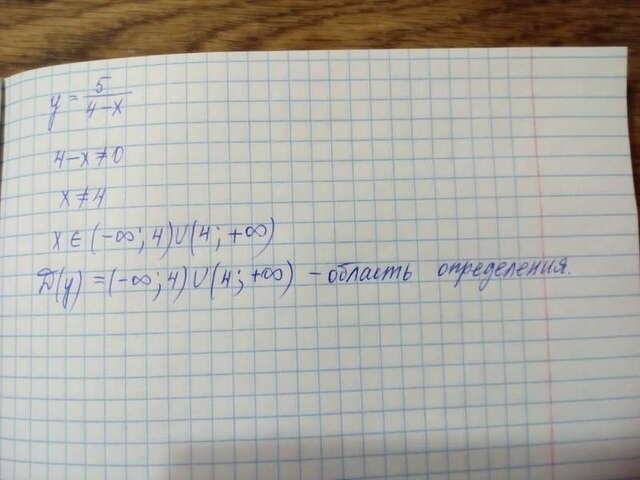 y = 5/(4-x)
4-x≠0
x≠4
x∈(-∞; 4)∪(4; +∞)
D(y) = (-∞; 4)∪(4; +∞) - область определения.